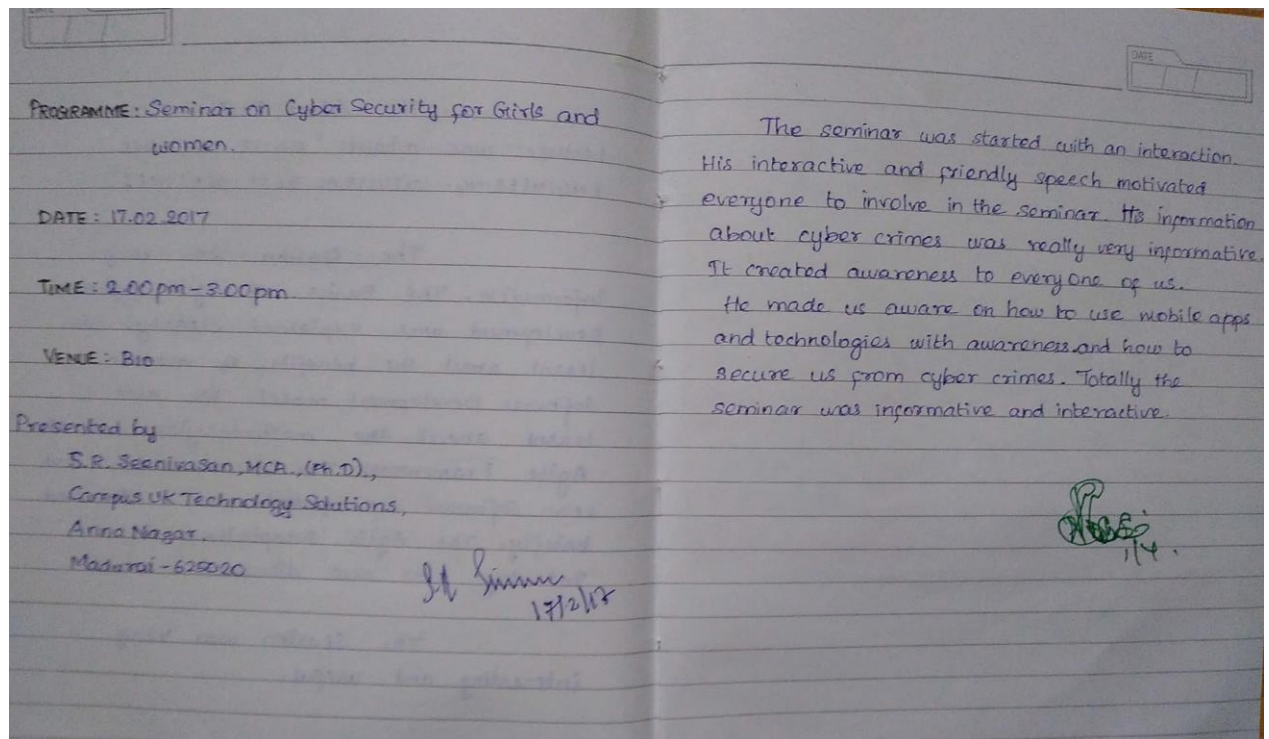 PROGRAMME: Seminar on Cyber Security for Girls and
women.
DATE: 17.02.2017
TIME: 2.00pm-3.00pm.
VENUE: B10
Presented by
S.R. Seenivasan, MCA., (Ph.D).,
Campus UK Technology Solutions,
Anna Nagar,
Madurai - 625020
17/2/17
DATE
The seminar was started with an interaction.
His interactive and friendly speech motivated
everyone to involve in the seminar. His information
about cyber crimes was really very informative.
It created awareness to everyone of us.
He made us aware on how to use mobile apps
and technologies with awareness and how to
secure us from cyber crimes. Totally the
seminar was informative and interactive.